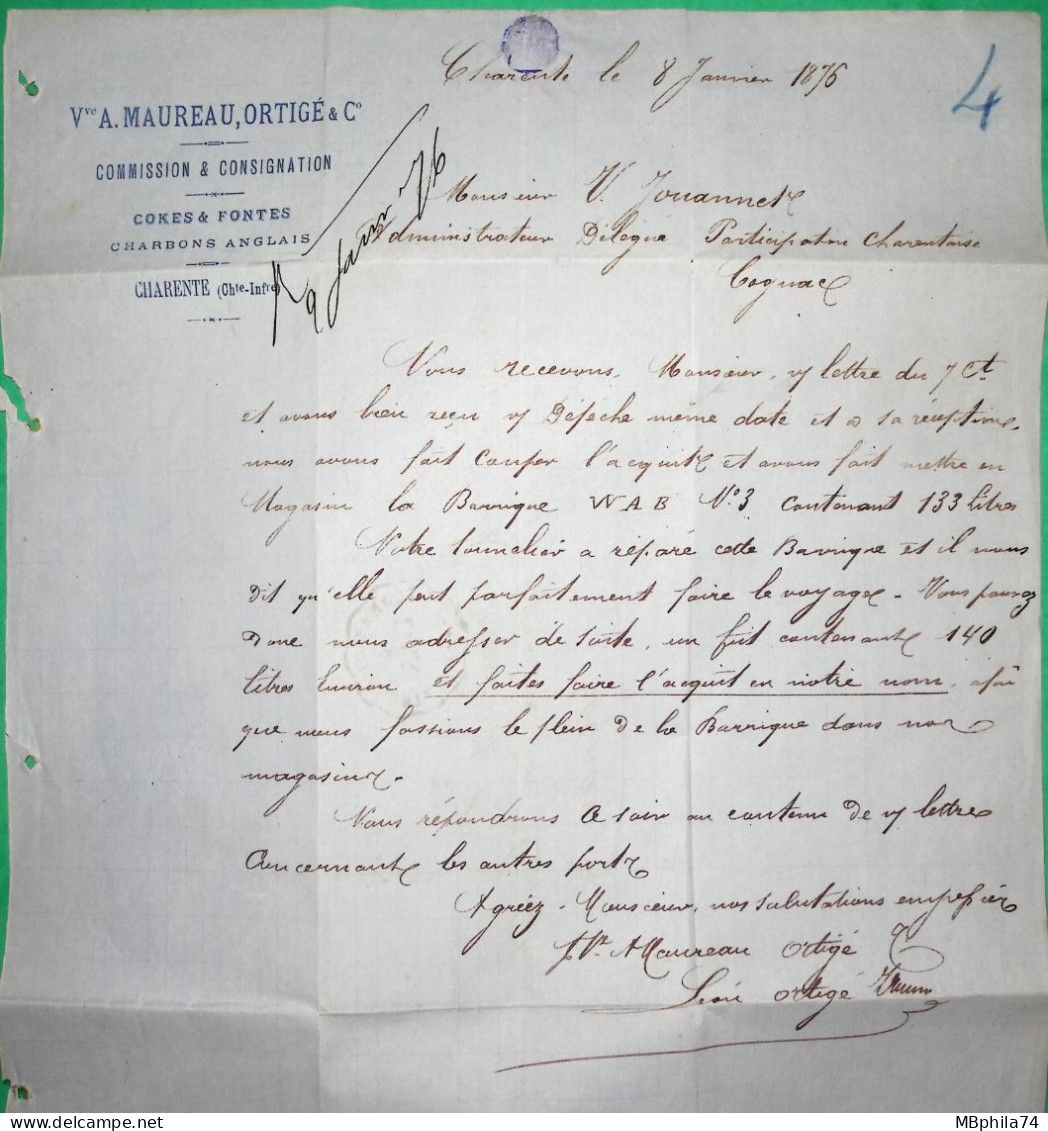 Charente le 8 Janvier 1876
4
Vve A. MAUREAU, ORTIGÉ & Co
COMMISSION & CONSIGNATION
COKES & FONTES
CHARBONS ANGLAIS
CHARENTE (Chte-Infre)
9 Janv 76
Monsieur V. Jouannet
Administrateur Délégué Participation Charentaise
Cognac
Nous recevons, Monsieur, v/ lettre du 7 Ct
et avons bien reçu v/ Dépêche même date et a sa réception
nous avons fait Couper l'acquit et avons fait mettre en
Magasin la Barrique WAB No 3 contenant 133 litres
Notre tonnelier a réparé cette Barrique et il nous
dit qu'elle peut parfaitement faire le voyage - Vous pouvez
Donc nous adresser de suite, un fût contenant 140
litres Environ et faites faire l'acquit en notre nom, afin
que nous fassions le plein de la Barrique dans nos
magasins.
Nous répondrons ce soir au contenu de v/ lettre
Concernant les autres ports
Agréez - Monsieur, nos salutations empressées
Ve A Maureau Ortigé C
Ortigé
MBphila74